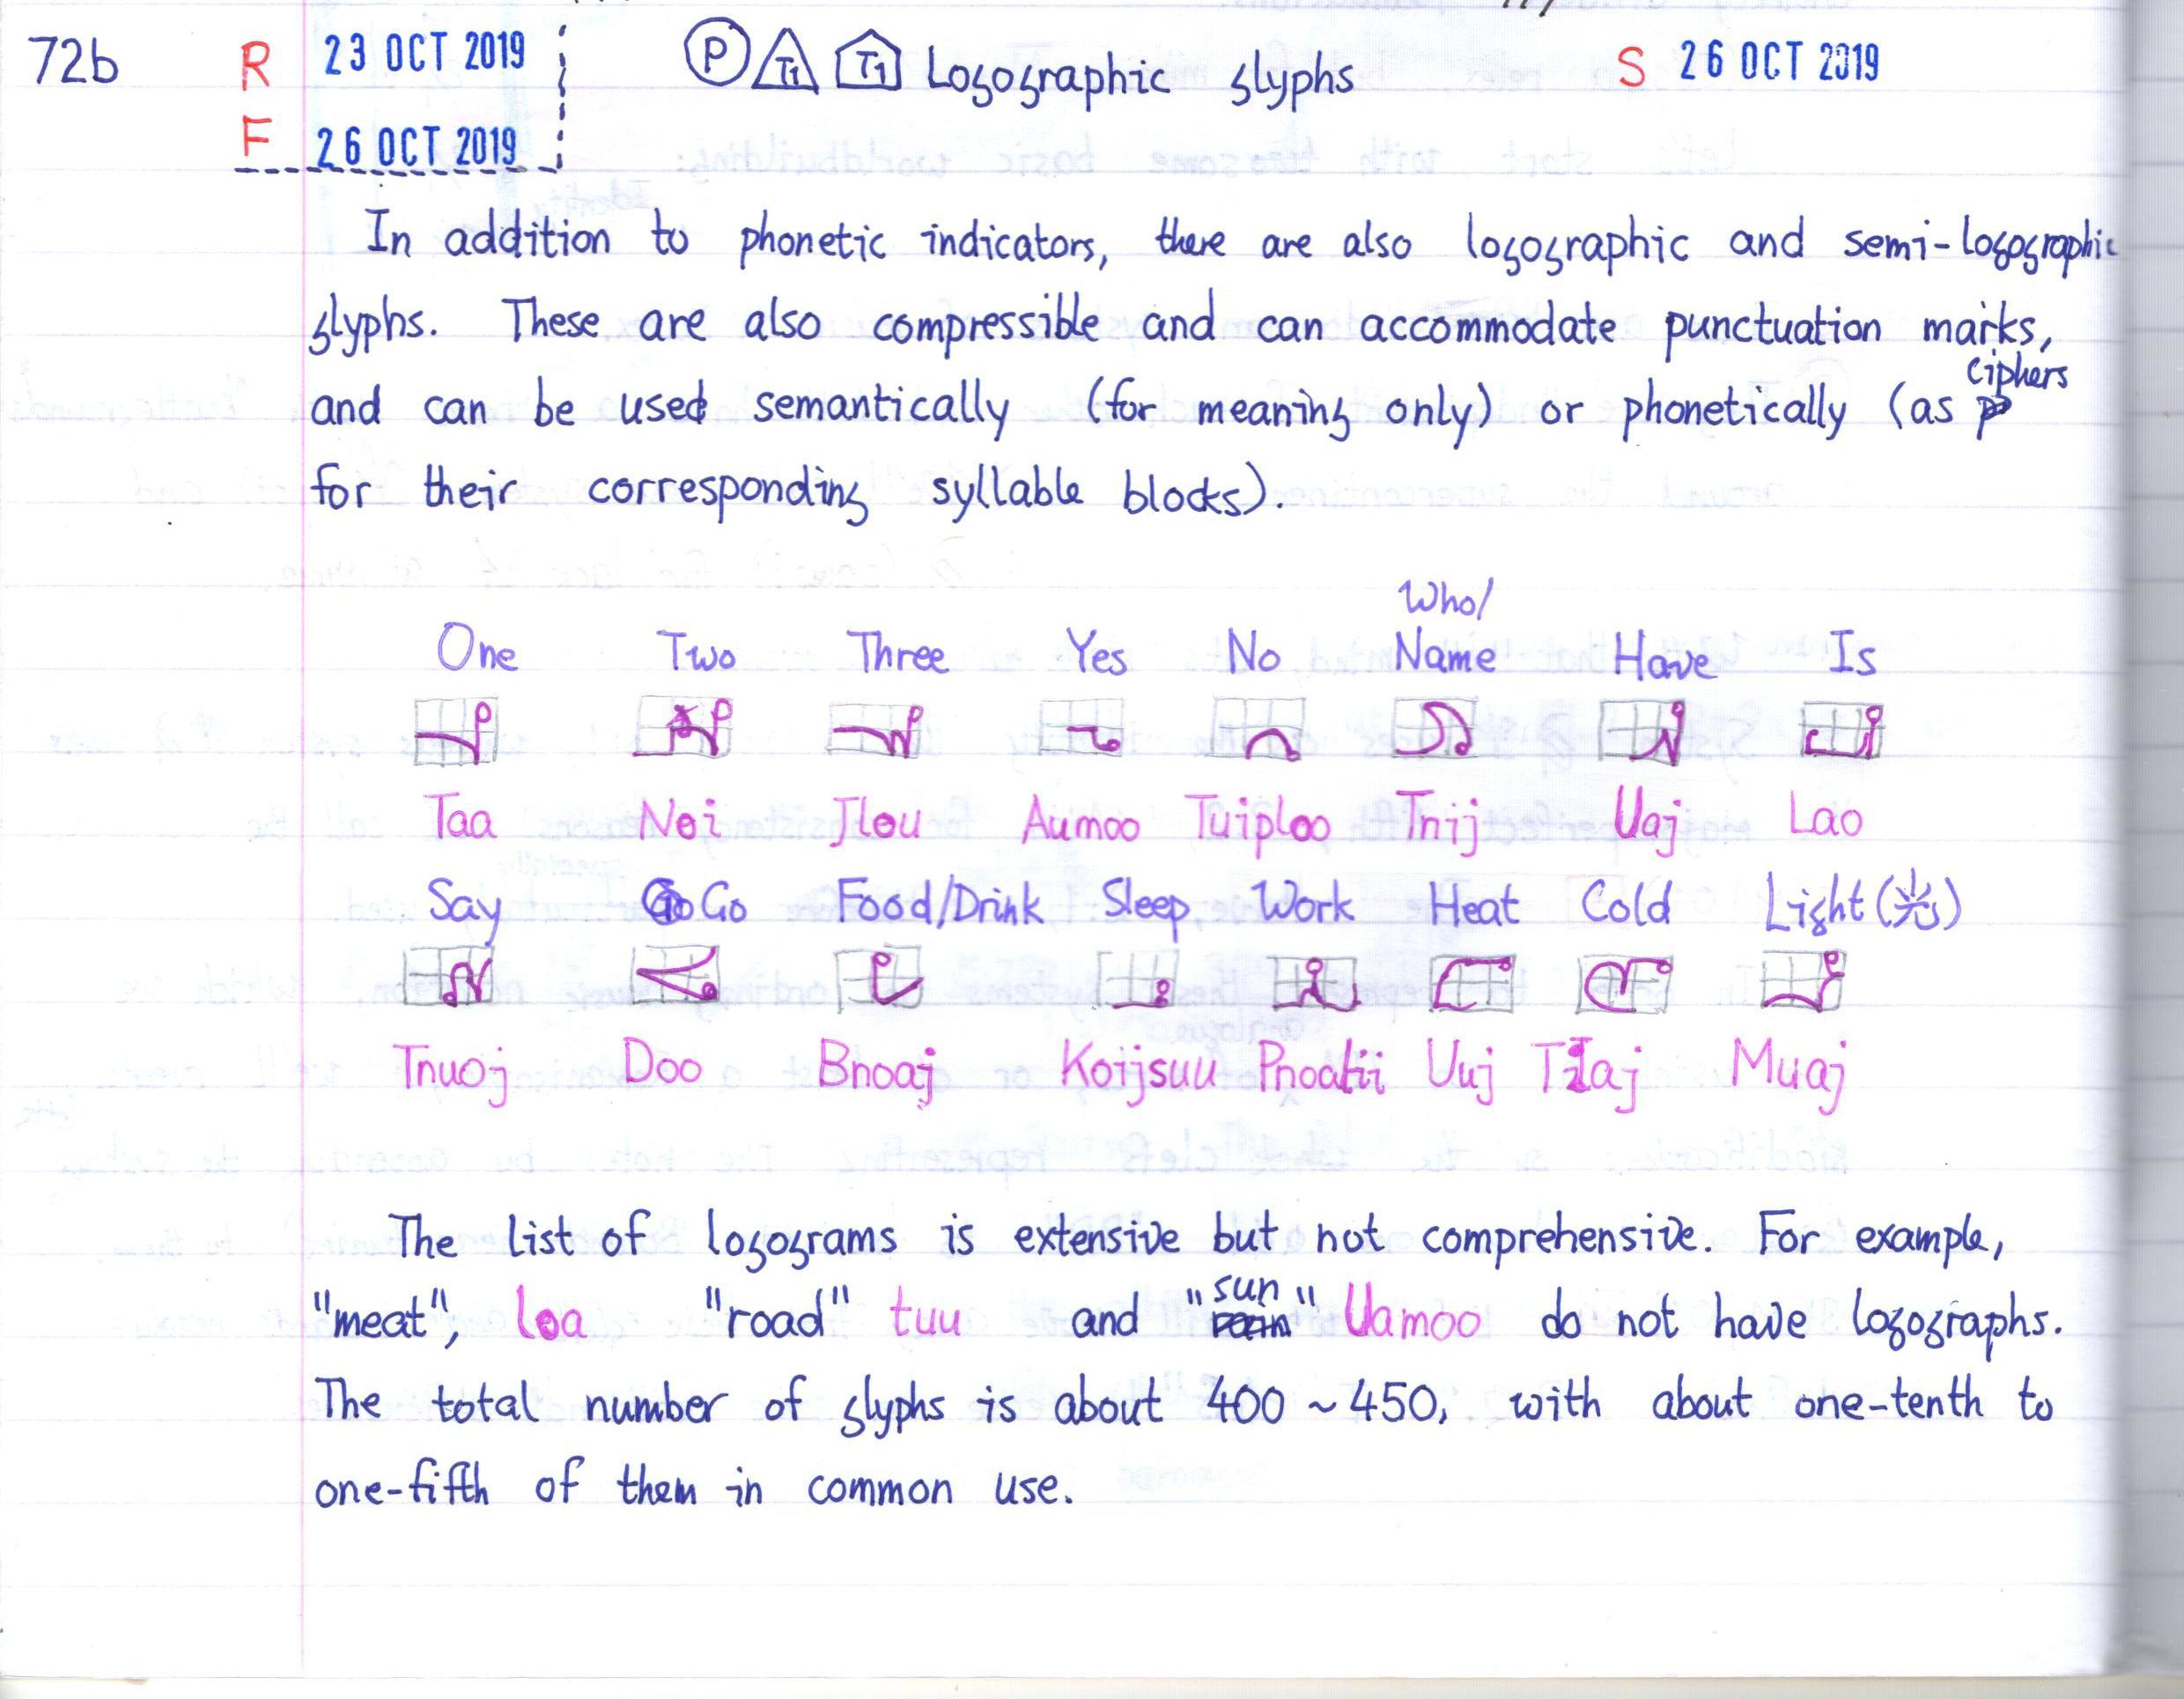 72b R 23 OCT 2019 P T1 T1 Logographic glyphs S 26 OCT 2019
F 26 OCT 2019
In addition to phonetic indicators, there are also logographic and semi-logographic
glyphs. These are also compressible and can accommodate punctuation marks,
and can be used semantically (for meaning only) or phonetically (as ciphers
for their corresponding syllable blocks).
One Two Three Yes No Who/Name Have Is
Taa Noi Jlou Aumoo Tuiploo Tnij Uaj Lao
Say Go Food/Drink Sleep Work Heat Cold Light (光)
Tnuoj Doo Bnoaj Koijsuu Pnoatii Uuj Muaj
The list of logograms is extensive but not comprehensive. For example,
"meat", loa "road" tuu and "sun" Uamoo do not have logographs.
The total number of glyphs is about 400 ~ 450, with about one-tenth to
one-fifth of them in common use.